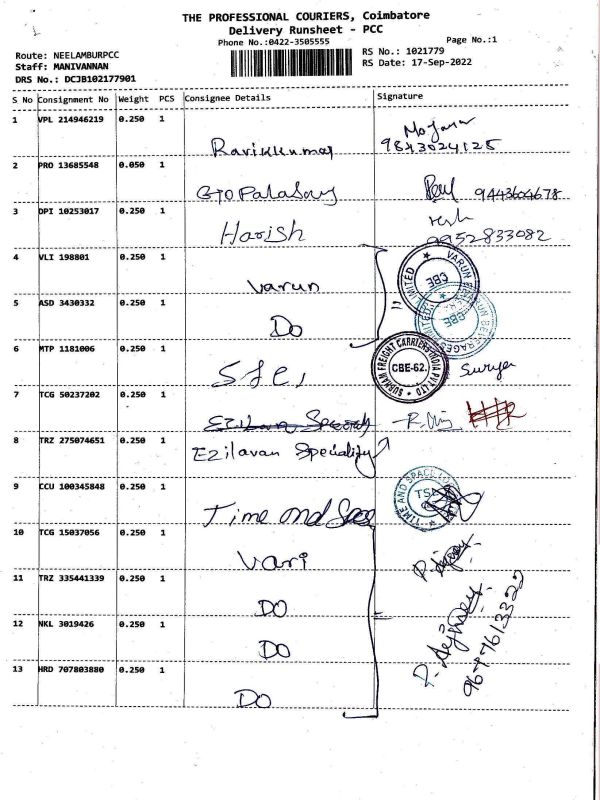 THE PROFESSIONAL COURIERS, Coimbatore
Delivery Runsheet - PCC
Phone No.:0422-3505555
Page No.:1
Route: NEELAMBURPCC
RS No.: 1021779
Staff: MANIVANNAN
RS Date: 17-Sep-2022
DRS No.: DCJB102177901
S No Consignment No Weight PCS Consignee Details Signature
1 VPL 214946219 0.250 1
Ravikkumar 9843024125
2 PRO 13685548 0.050 1
9443604678
3 DPI 10253017 0.250 1
Harish 9952833082
4 VLI 198801 0.250 1
Varun CBE VARUN BEVERAGES LIMITED
5 ASD 3430332 0.250 1
Do CBE VARUN BEVERAGES LIMITED
6 MTP 1181006 0.250 1
CBE-62. Surya
7 TCG 50237202 0.250 1
8 TRZ 275074651 0.250 1
Ezilavan Speciality
9 CCU 100345848 0.250 1
Time and Space TIME AND SPACE
10 TCG 15037056 0.250 1
Vari
11 TRZ 335441339 0.250 1
DO
12 NKL 3019426 0.250 1
DO
13 HRD 707803880 0.250 1
DO